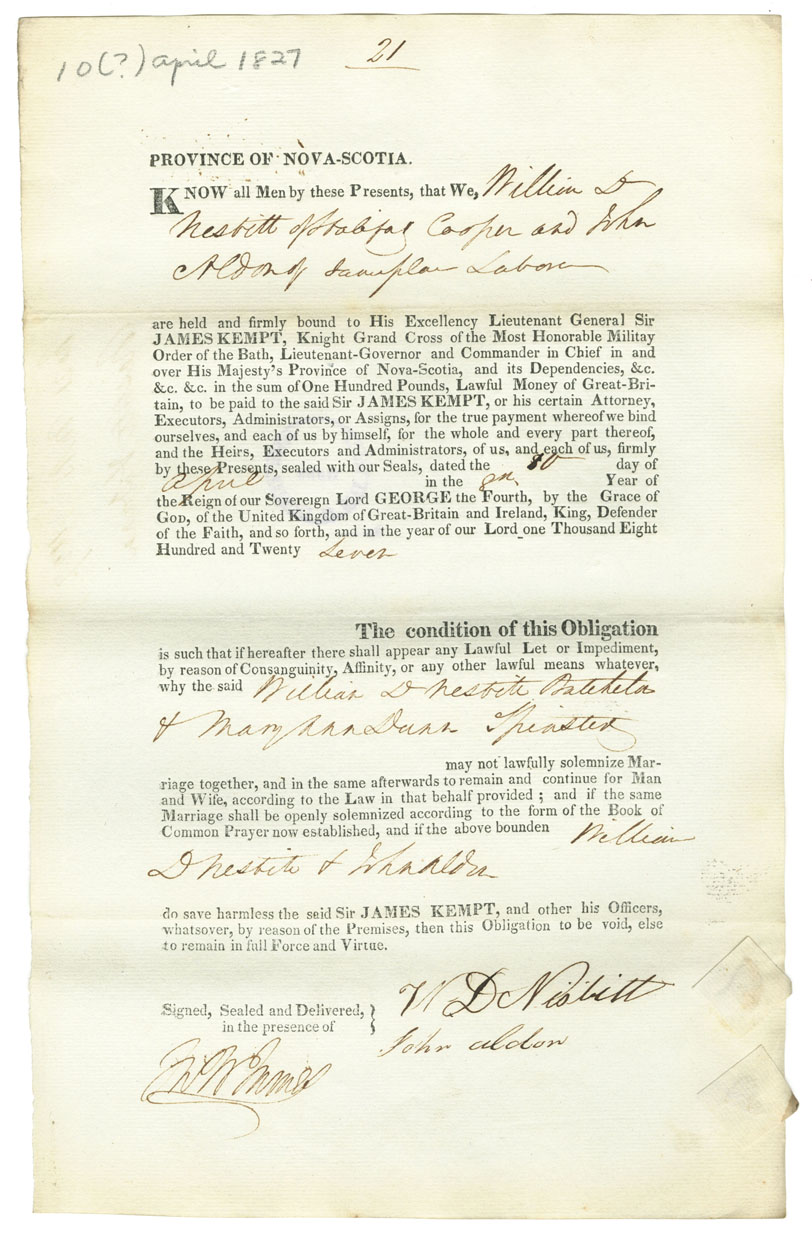 10(?) april 1827
21
PROVINCE OF NOVA-SCOTIA.
KNOW all Men by these Presents, that We, William D
Nesbitt of Halifax Cooper and John
Aldon of Labourer
are held and firmly bound to His Excellency Lieutenant General Sir
JAMES KEMPT, Knight Grand Cross of the Most Honorable Militay
Order of the Bath, Lieutenant-Governor and Commander in Chief in and
over His Majesty's Province of Nova-Scotia, and its Dependencies, &c.
&c. &c. in the sum of One Hundred Pounds, Lawful Money of Great-Bri-
tain, to be paid to the said Sir JAMES KEMPT, or his certain Attorney,
Executors, Administrators, or Assigns, for the true payment whereof we bind
ourselves, and each of us by himself, for the whole and every part thereof,
and the Heirs, Executors and Administrators, of us, and each of us, firmly
by these Presents, sealed with our Seals, dated the day of
April in the Year of
the Reign of our Sovereign Lord GEORGE the Fourth, by the Grace of
GOD, of the United Kingdom of Great-Britain and Ireland, King, Defender
of the Faith, and so forth, and in the year of our Lord one Thousand Eight
Hundred and Twenty Seven
The condition of this Obligation
is such that if hereafter there shall appear any Lawful Let or Impediment,
by reason of Consanguinity, Affinity, or any other lawful means whatever,
why the said William D Nesbitt Batchelor
& Mary Ann Dunn Spinster
may not lawfully solemnize Mar-
riage together, and in the same afterwards to remain and continue for Man
and Wife, according to the Law in that behalf provided ; and if the same
Marriage shall be openly solemnized according to the form of the Book of
Common Prayer now established, and if the above bounden William
D Nesbitt & John Aldon
do save harmless the said Sir JAMES KEMPT, and other his Officers,
whatsover, by reason of the Premises, then this Obligation to be void, else
to remain in full Force and Virtue.
Signed, Sealed and Delivered,
in the presence of
W D Nisbitt
John aldon